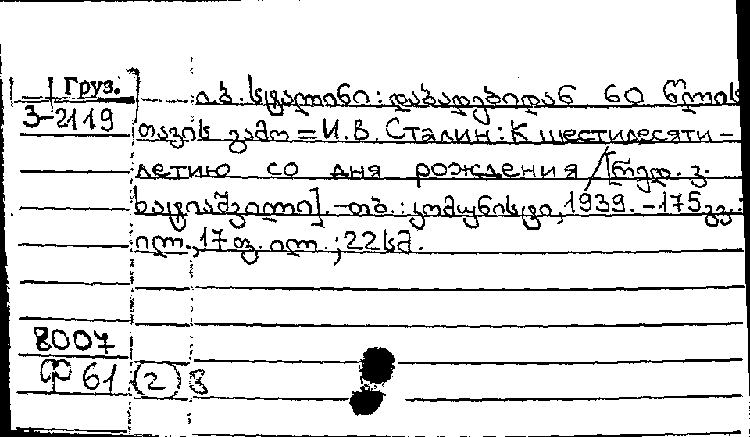 Груз.
3-2119
ი.ბ. სტალინი: დაბადებიდან 60 წლის
თავის გამო = И.В. Сталин: К шестидесяти-
летию со дня рождения / [რედ. ვ.
ხატიაშვილი]. - თბ.: კომუნისტი, 1939. - 175 გვ.:
ილ., 17 ფ. ილ.; 22 სმ.
8007
Ф 61 (2) 8